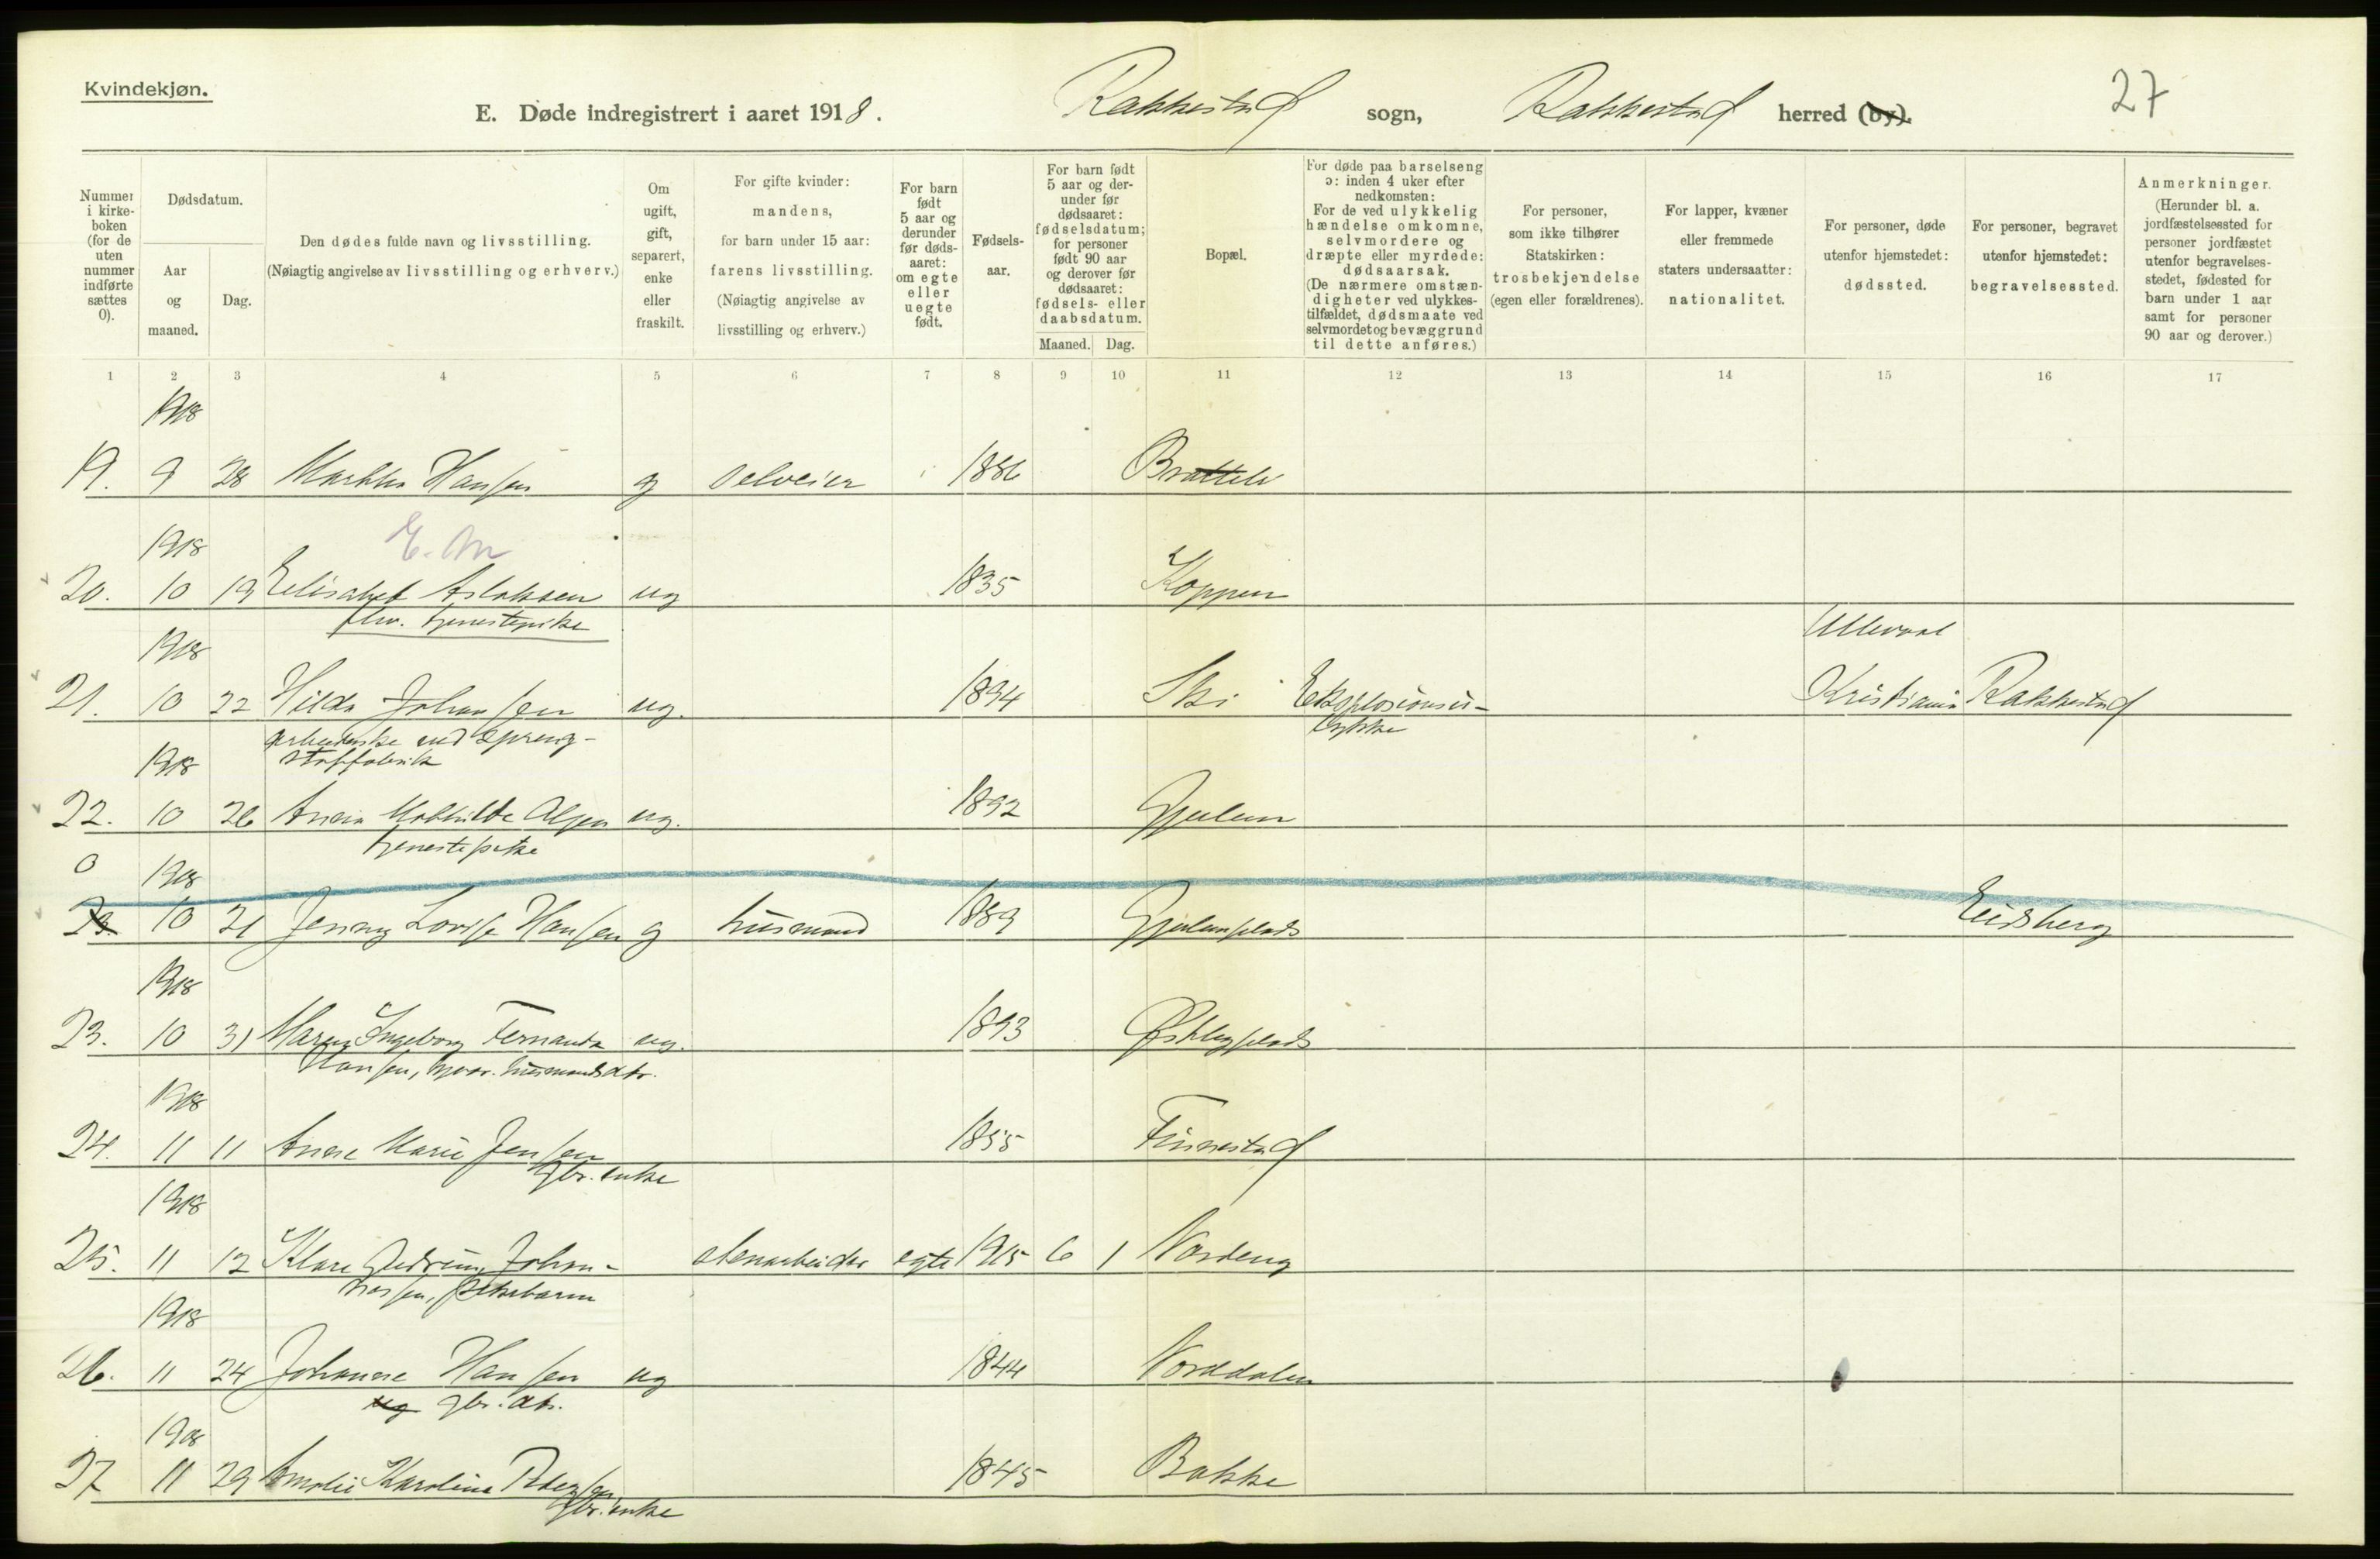 Kvindekjøn.
27
E. Døde indregistrert i aaret 1918. Rakkestad sogn, Rakkestad herred (by).
Nummer i kirkeboken (for de uten nummer indførte sættes 0).
Dødsdatum.
Aar og maaned.
Dag.
Den dødes fulde navn og livsstilling.
(Nøiagtig angivelse av livsstilling og erhverv.)
Om ugift, gift, separert, enke eller fraskilt.
For gifte kvinder: mandens, for barn under 15 aar: farens livsstilling. (Nøiagtig angivelse av livsstilling og erhverv.)
For barn født 5 aar og derunder før dødsaaret: om egte eller uegte født.
Fødselsaar.
For barn født 5 aar og derunder før dødsaaret: fødselsdatum; for personer født 90 aar og derover før dødsaaret: fødsels- eller daabsdatum.
Maaned. Dag.
Bopæl.
For døde paa barselseng ɔ: inden 4 uker efter nedkomsten: For de ved ulykkelig hændelse omkomne, selvmordere og dræpte eller myrdede: dødsaarsak. (De nærmere omstændigheter ved ulykkestilfældet, dødsmaate ved selvmordet og bevæggrund til dette anføres.)
For personer, som ikke tilhører Statskirken: trosbekjendelse (egen eller forældrenes).
For lapper, kvæner eller fremmede staters undersaatter: nationalitet.
For personer, døde utenfor hjemstedet: dødssted.
For personer, begravet utenfor hjemstedet: begravelsessted.
Anmerkninger. (Herunder bl. a. jordfæstelsessted for personer jordfæstet utenfor begravelsesstedet, fødested for barn under 1 aar samt for personer 90 aar og derover.)
1 2 3 4 5 6 7 8 9 10 11 12 13 14 15 16 17
1918
19. 9 28 Marthe Hansen g selveier 1886
1918 E. M
20. 10 19 Elisabet Aslaksen ug 1835 Koppen
flw. tjenestepike
1918 Ullevaal
21. 10 22 Hilda Johansen ug. 1894 Ski Eksplosionsu- Kristiania Rakkestad
arbeiderske ved spreng- lykke
stoffabrik
1918
22. 10 26 Anna Mathilde Olsen ug. 1892 Gjulem
tjenestepike
0 1918
23. 10 21 Jenny Lovise Hansen g husmand 1889 Gjulemplads Eidsberg
1918
23. 10 31 Maren Ingeborg Fernanda ug. 1893 Østbyplads
Hansen, husmandsdtr.
1918
24. 11 11 Anne Marie Jensen 1855 Finnestad
gbr. enke
1918
25. 11 12 Klara Gudrun Johan- stenarbeider egte 1915 6 1 Nordeng
nessen, pikebarn
1918
26. 11 24 Johanne Hansen ug 1844 Norddalen
ug gbr. dtr.
1918
27 11 29 Amalie Karoline Pedersen 1845 Bakke
gbr. enke